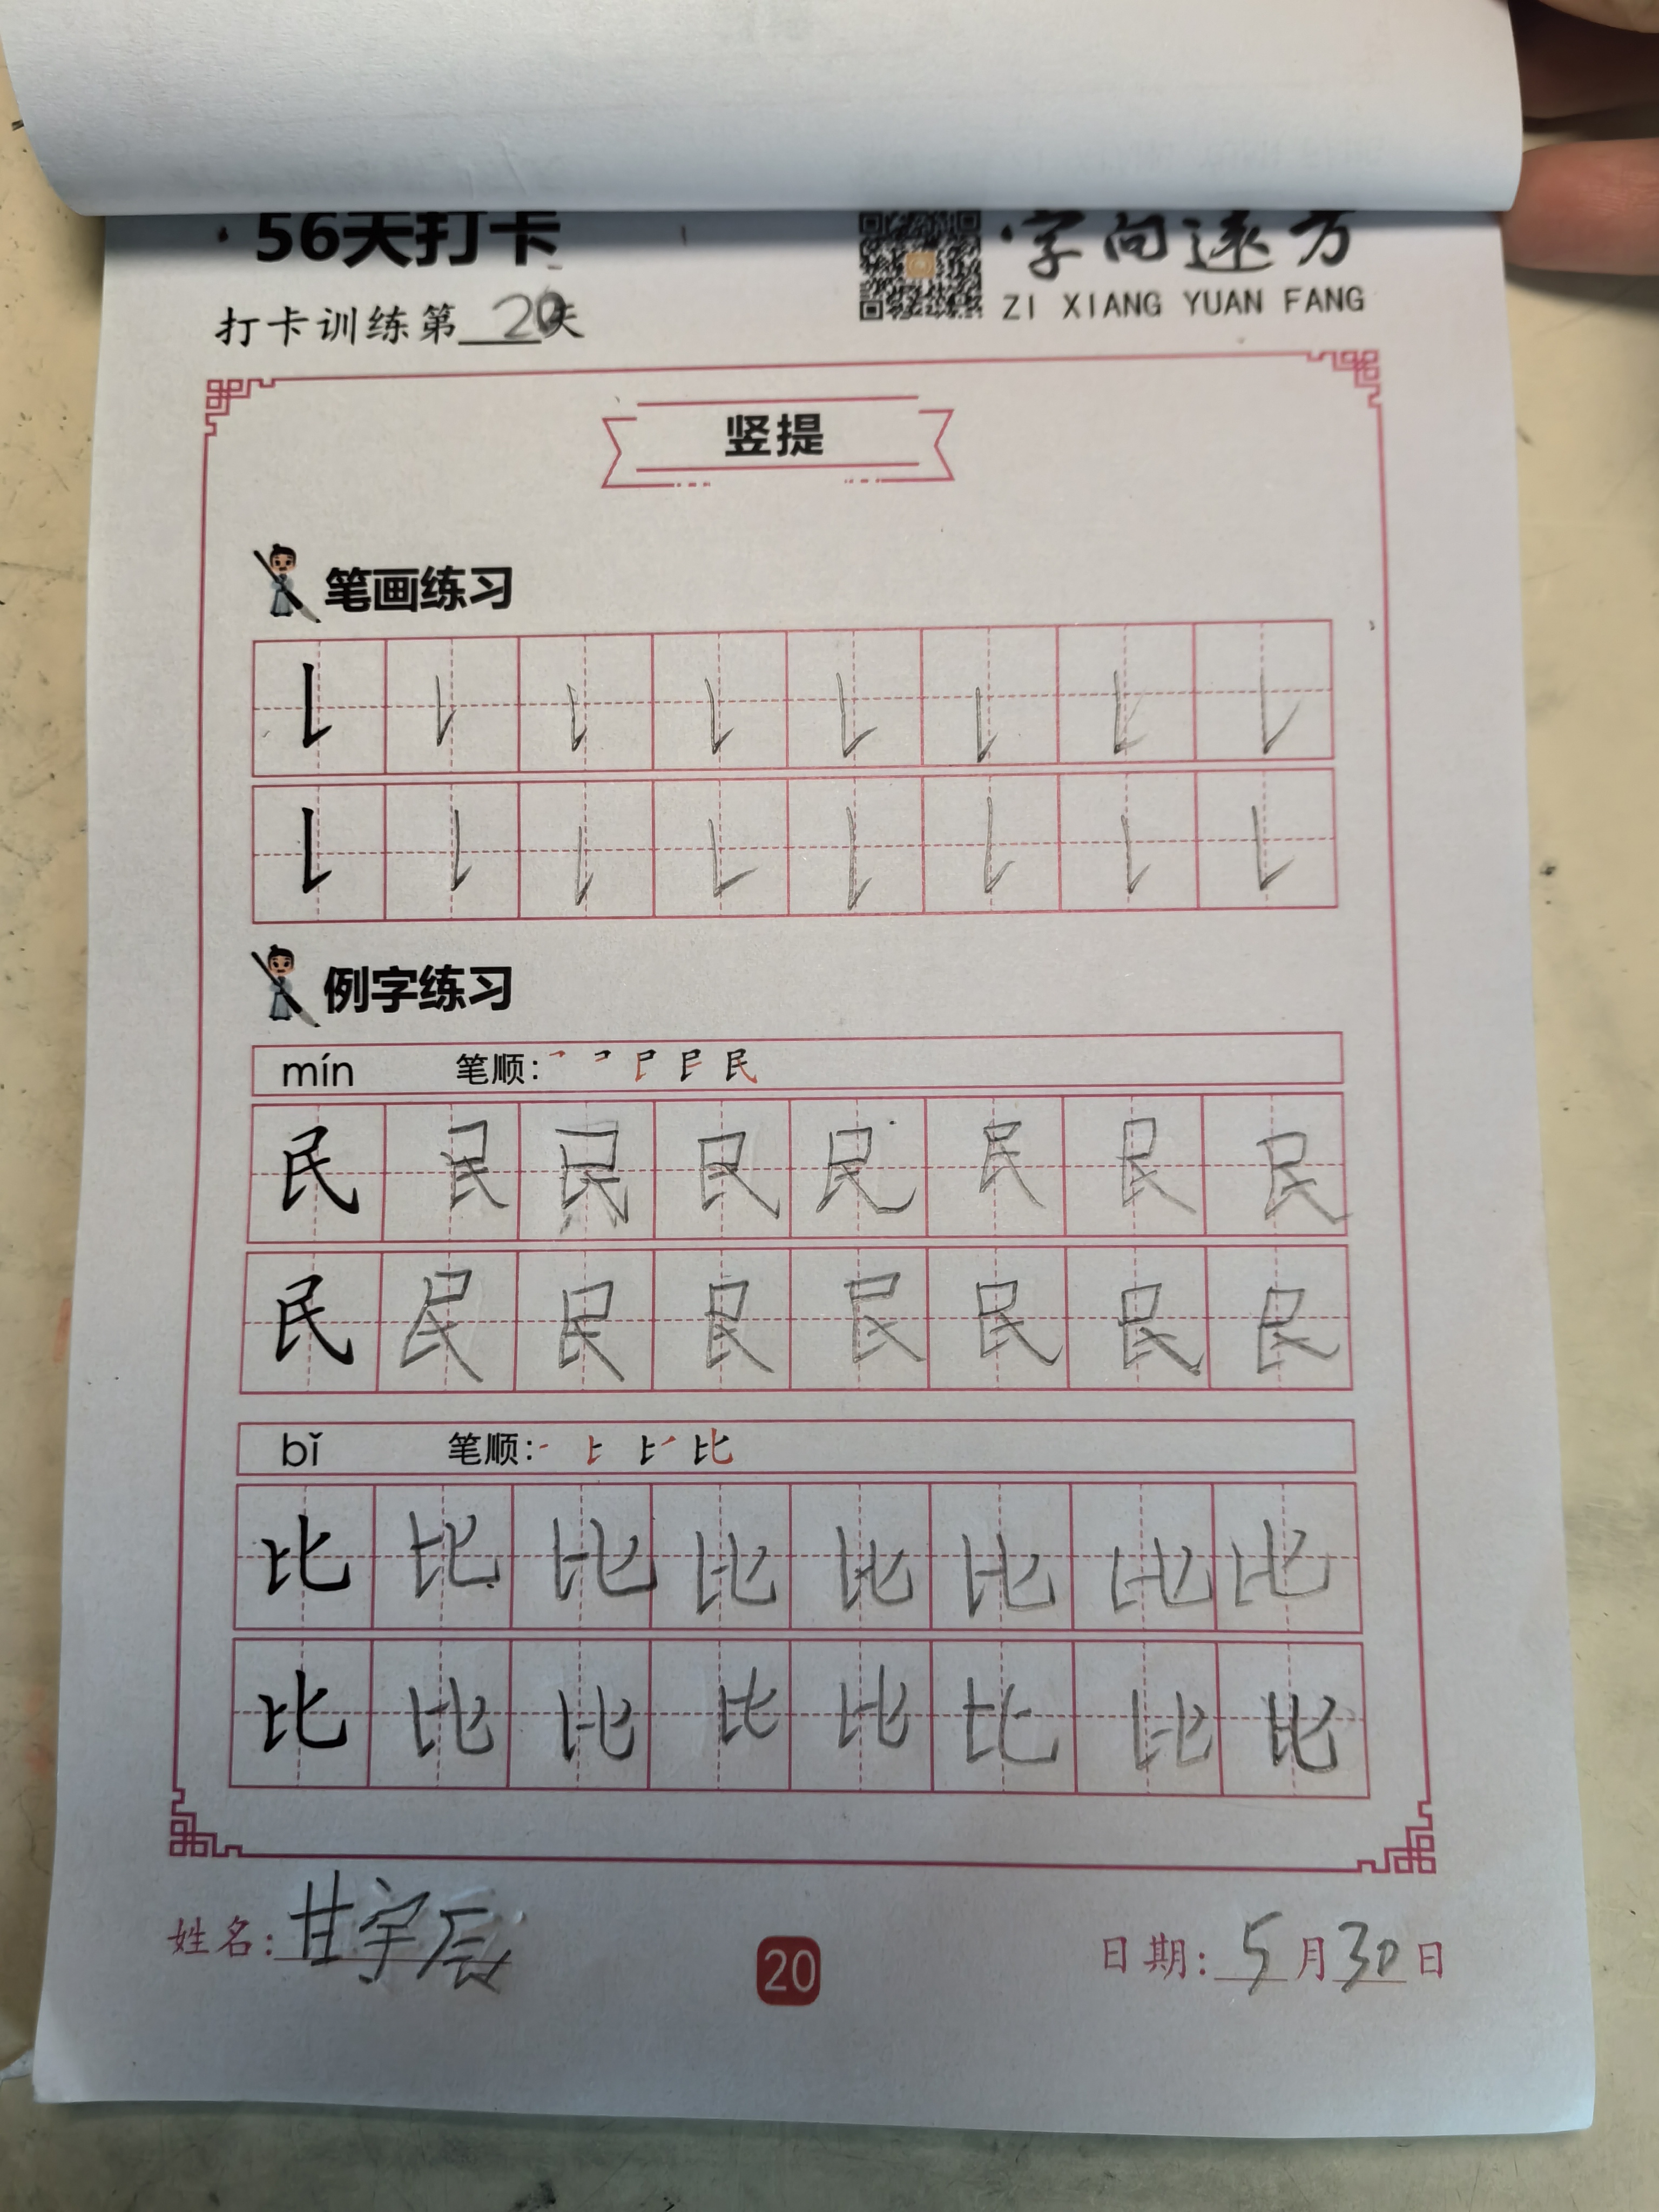 ·56天打卡
·字向远方
ZI XIANG YUAN FANG
打卡训练第20天
竖提
笔画练习
例字练习
mín 笔顺:
民 民 民 民 民 民 民 民
民 民 民 民 民 民 民 民
bǐ 笔顺:
比 比 比 比 比 比 比 比
比 比 比 比 比 比 比 比
姓名:甘宇辰
20
日期:5月30日